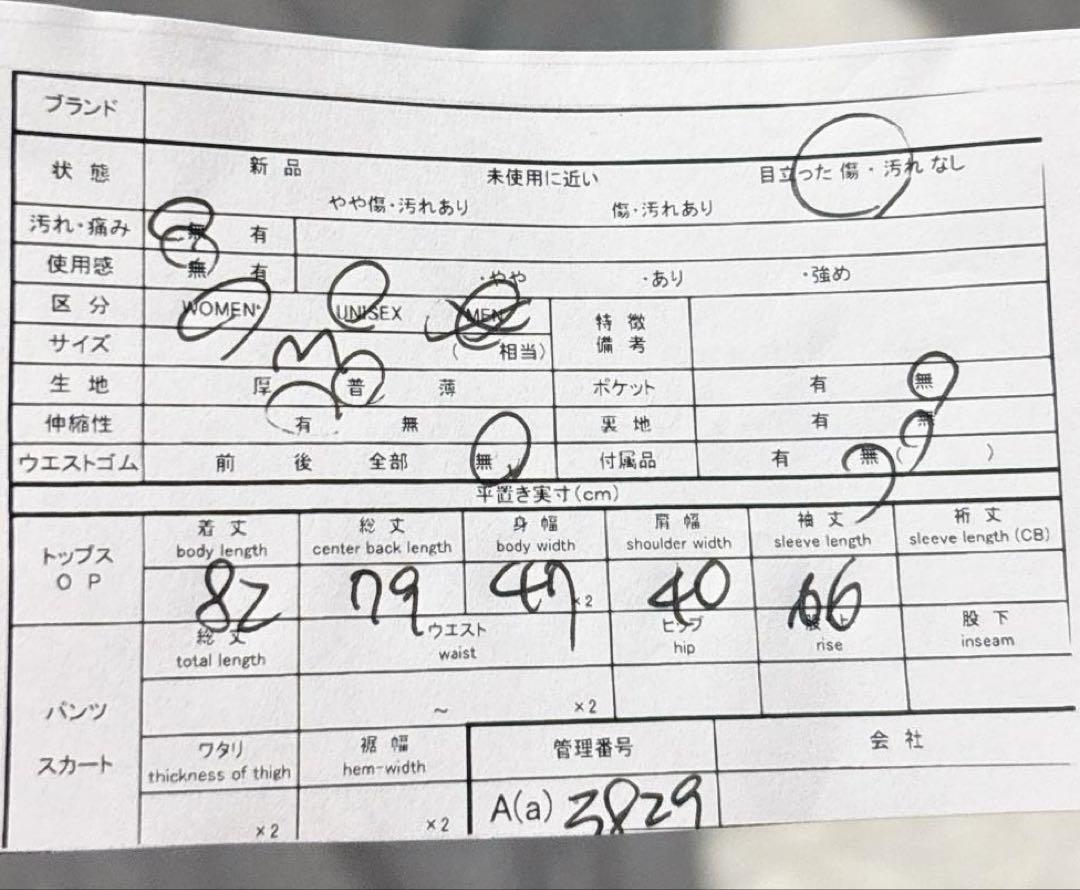 ブランド
状態 新品 未使用に近い 目立った傷・汚れなし
やや傷・汚れあり 傷・汚れあり
汚れ・痛み 無 有
使用感 無 有 ・やや ・あり ・強め
区分 WOMEN UNISEX MEN 特徴
サイズ M ( 相当) 備考
生地 厚 普 薄 ポケット 有 無
伸縮性 有 無 裏地 有 無
ウエストゴム 前 後 全部 無 付属品 有 無 ( )
平置き実寸(cm)
トップス 着丈 総丈 身幅 肩幅 袖丈 裄丈
OP body length center back length body width shoulder width sleeve length sleeve length (CB)
82 79 47 ×2 40 66
総丈 ウエスト ヒップ 股上 股下
total length waist hip rise inseam
パンツ ~ ×2
スカート ワタリ 裾幅 管理番号 会社
thickness of thigh hem-width
×2 ×2 A(a) 3829